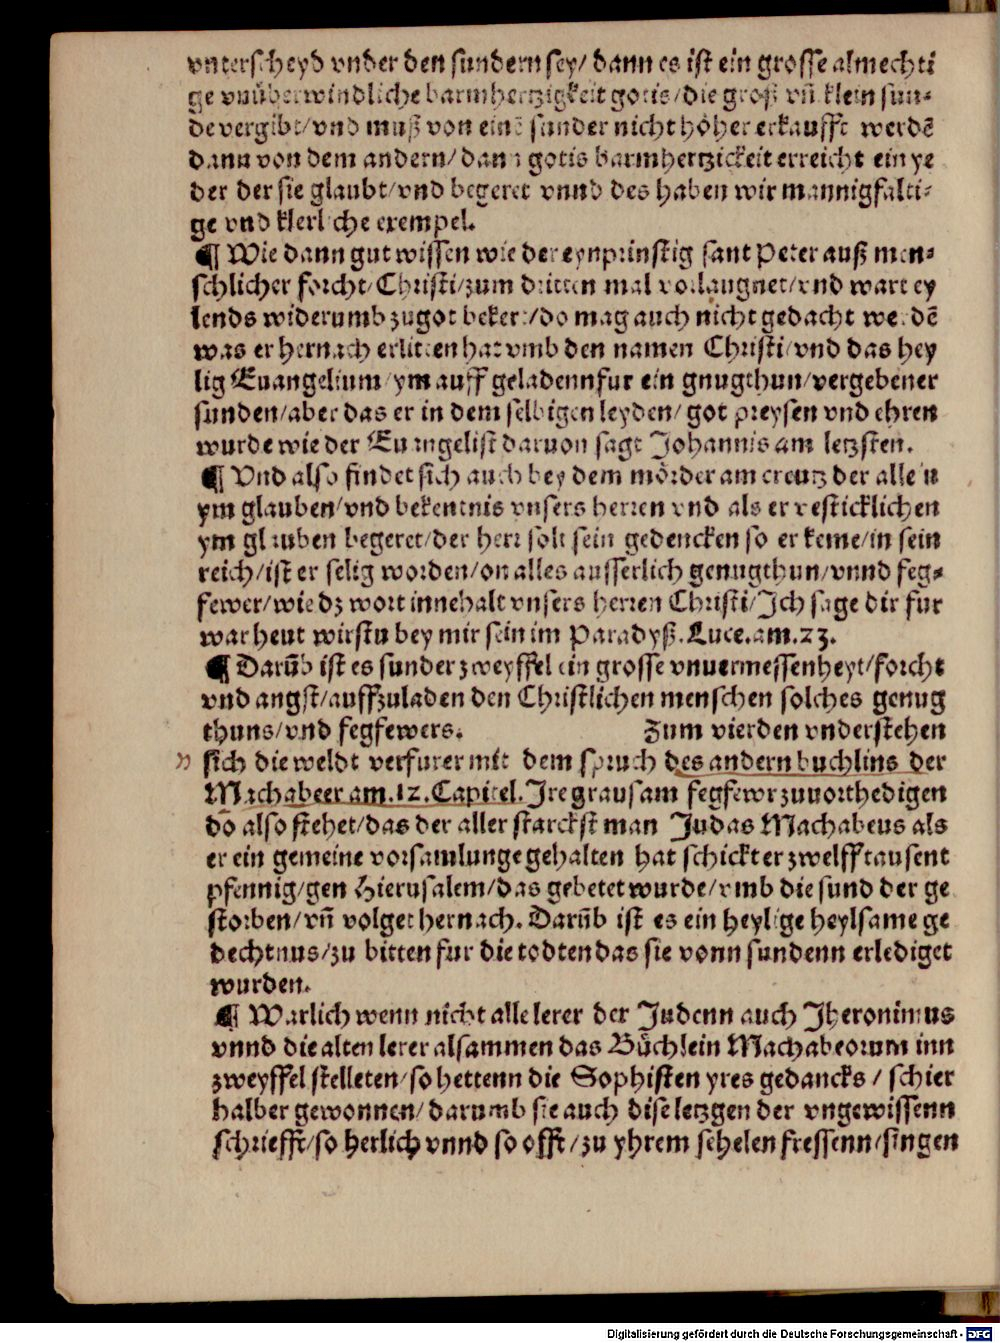 vnterscheyd vnder den sundern sey/ dann es ist ein grosse almechti
ge vnüberwindliche barmhertzigkeit gotis/die groß vñ klein sun⸗
de vergibt/vnd muß von einē sunder nicht höher erkaufft werdē
dann von dem andern/ dann gotis barmhertzickeit erreicht ein ye
der der sie glaubt/vnd begeret vnnd des haben wir mannigfalti⸗
ge vnd klerliche exempel.
¶ Wie dann gut wissen wie der eynprinstig sant Peter auß men⸗
schlicher forcht/Christi/zum dritten mal vorlaugnet/vnd wart ey
lends widerumb zu got bekert/do mag auch nicht gedacht werdē
was er hernach erlitten hat vmb den namen Christi/vnd das hey
lig Euangelium/ym auff geladenn fur ein gnugthun/vergebener
sunden/aber das er in dem selbigen leyden/ got preysen vnd ehren
wurde wie der Euangelist daruon sagt Johannis am letzsten.
¶ Vnd also findet sich auch bey dem mörder am creutz der allein
ym glauben/vnd bekentnis vnsers herren vnd als er vesticklichen
ym glauben begeret/der herr solt sein gedencken so er keme/in sein
reich/ist er selig worden/on alles ausserlich genugthun/vnnd feg⸗
fewer/wie dz wort innehalt vnsers herren Christi/Jch sage dir fur
war heut wirstu bey mir sein im Paradyß.Luce.am.23.
¶ Darūb ist es sunder zweyffel ein grosse vnuermessenheyt/forcht
vnd angst/auffzuladen den Christlichen menschen solches genug
thuns/vnd fegfewers. Zum vierden vnderstehen
sich die weldt verfurer mit dem spruch des andern buchlins der
Machabeer am.12.Capitel.Jre grausam fegfewr zuuorthedigen
do also stehet/das der aller starckst man Judas Machabeus als
er ein gemeine vorsamlunge gehalten hat schickt er zwelff tausent
pfennig/gen Hierusalem/das gebetet wurde/vmb die sund der ge
storben/vñ volget hernach. Darūb ist es ein heylige heylsame ge
dechtnus/zu bitten fur die todten das sie vonn sundenn erlediget
wurden.
¶ Warlich wenn nicht alle lerer der Judenn auch Jheronimus
vnnd die alten lerer alsammen das Büchlein Machabeorum inn
zweyffel stelleten/so hettenn die Sophisten yres gedancks / schier
halber gewonnen/darumb sie auch dise letzgen der vngewissenn
schriefft/so herlich vnnd so offt/zu yhrem sehelen fressenn/singen
Digitalisierung gefördert durch die Deutsche Forschungsgemeinschaft - DFG